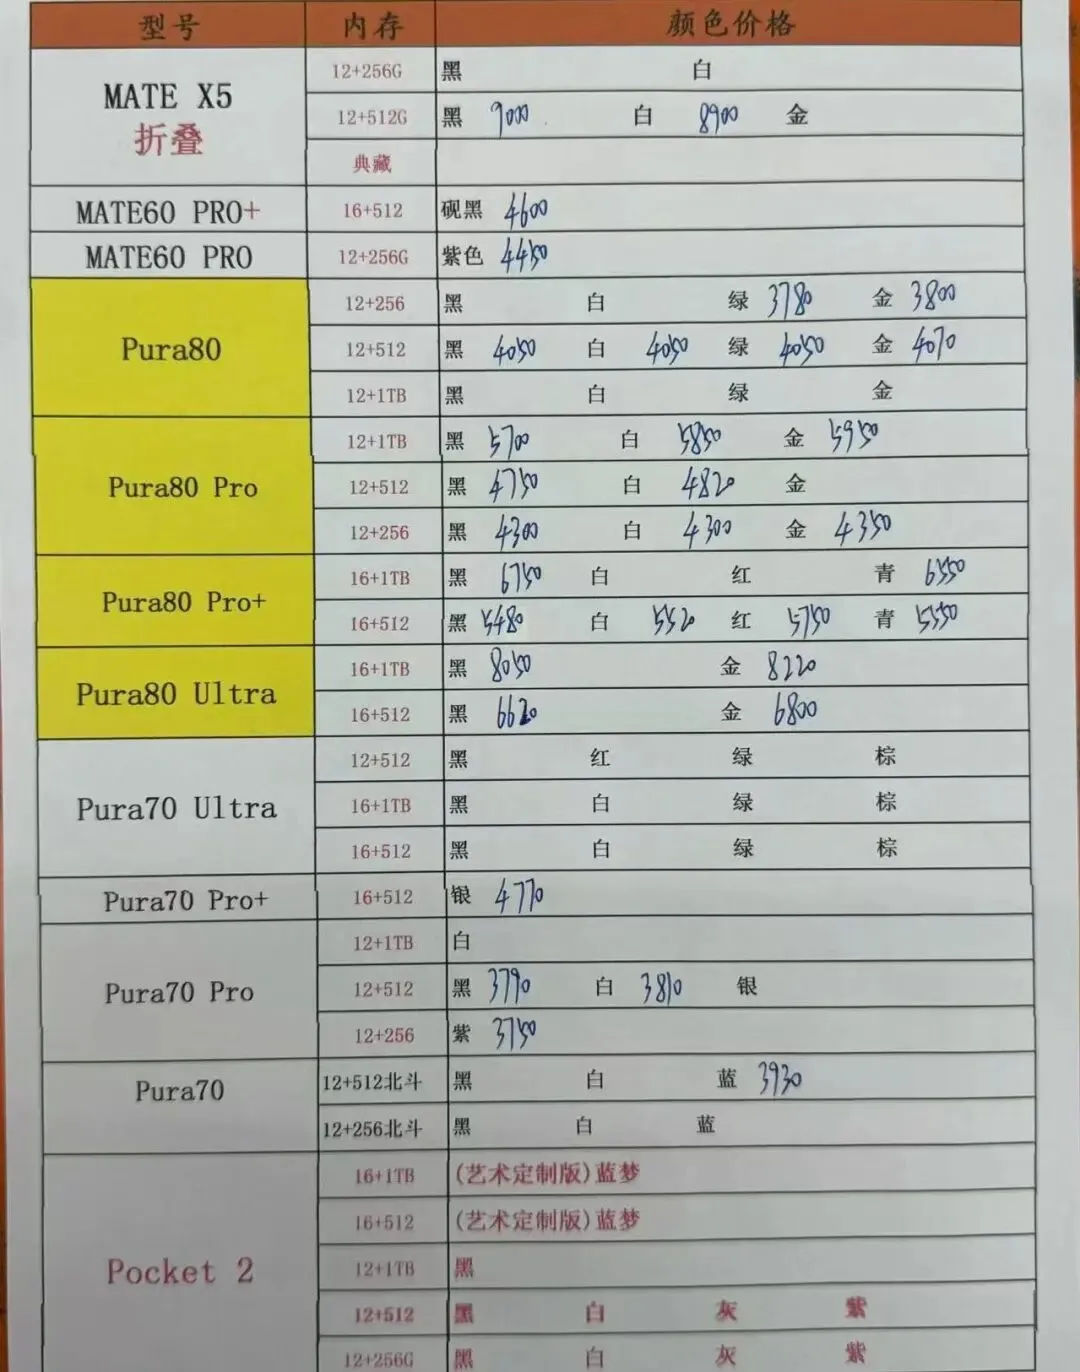 型号 内存 颜色价格
MATE X5 折叠 12+256G 黑 白
12+512G 黑 9000 白 8900 金
典藏
MATE60 PRO+ 16+512 砚黑 4600
MATE60 PRO 12+256G 紫色 4450
Pura80 12+256 黑 白 绿 3780 金 3800
12+512 黑 4050 白 4050 绿 4050 金 4070
12+1TB 黑 白 绿 金
Pura80 Pro 12+1TB 黑 5700 白 5850 金 5950
12+512 黑 4750 白 4820 金
12+256 黑 4300 白 4300 金 4350
Pura80 Pro+ 16+1TB 黑 6750 白 红 青 6550
16+512 黑 5480 白 5520 红 5750 青 5550
Pura80 Ultra 16+1TB 黑 8050 金 8220
16+512 黑 6620 金 6800
Pura70 Ultra 12+512 黑 红 绿 棕
16+1TB 黑 白 绿 棕
16+512 黑 白 绿 棕
Pura70 Pro+ 16+512 银 4770
Pura70 Pro 12+1TB 白
12+512 黑 3790 白 3810 银
12+256 紫 3750
Pura70 12+512北斗 黑 白 蓝 3930
12+256北斗 黑 白 蓝
Pocket 2 16+1TB (艺术定制版)蓝梦
16+512 (艺术定制版)蓝梦
12+1TB 黑
12+512 黑 白 灰 紫
12+256G 黑 白 灰 紫